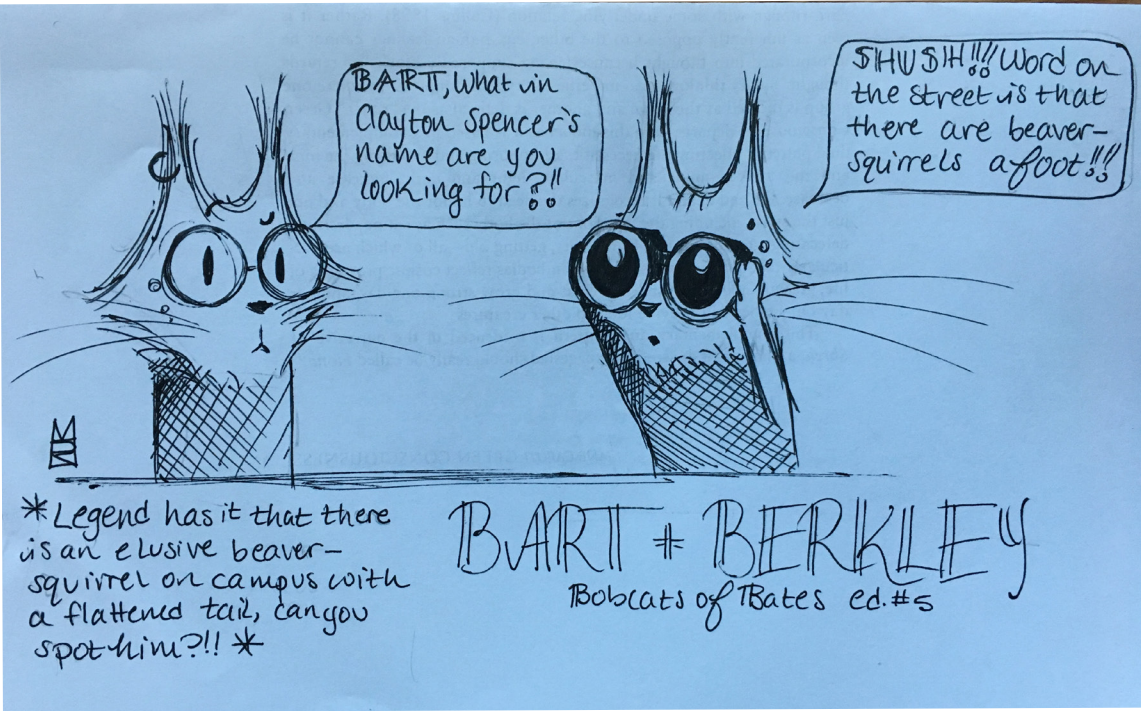 BART, What in
Clayton Spencer's
name are you
looking for?!!
SHUSH!!! Word on
the street is that
there are beaver-
squirrels afoot!!!
*Legend has it that there
is an elusive beaver-
squirrel on campus with
a flattened tail, can you
spot him?!! *
BART + BERKLEY
Bobcats of Bates ed.#5